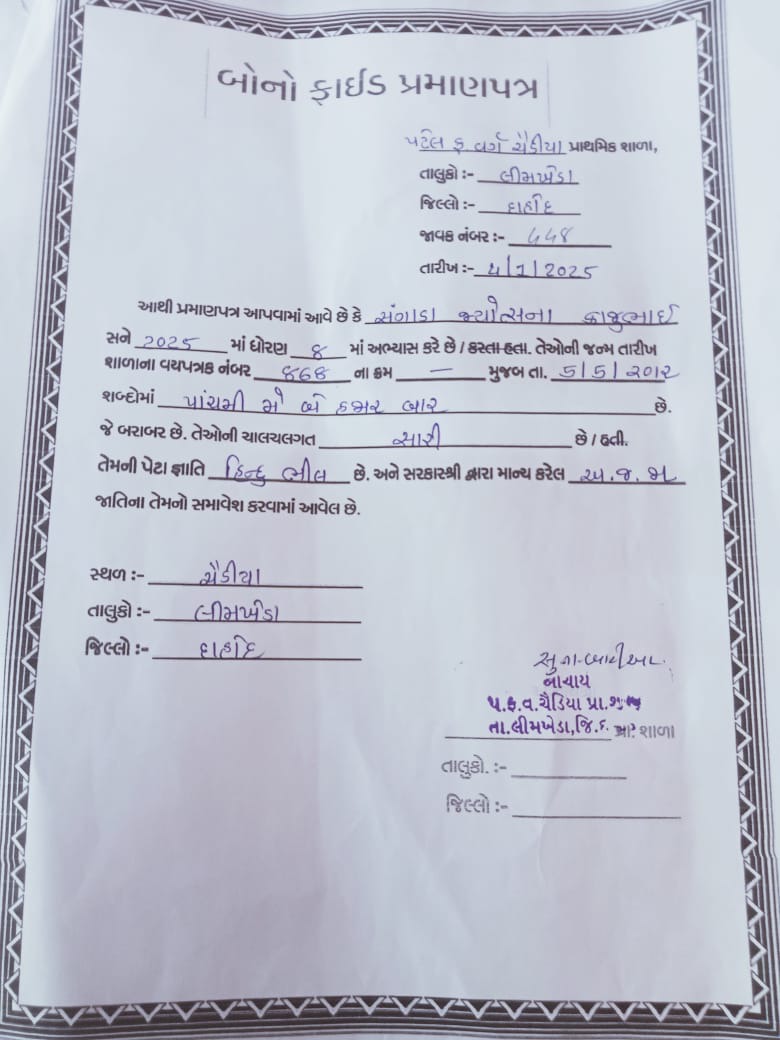 બોનો ફાઈડ પ્રમાણપત્ર
પટેલ ફ વર્ગ ચૈડીયા પ્રાથમિક શાળા,
તાલુકો :- લીમખેડા
જિલ્લો :- દાહોદ
જાવક નંબર :- ૬૬૪
તારીખ :- ૫/૧/2025
આથી પ્રમાણપત્ર આપવામાં આવે છે કે સંગાડા જ્યોત્સના કાજુભાઈ
સને 2025 માં ધોરણ ૪ માં અભ્યાસ કરે છે / કરતા હતા. તેઓની જન્મ તારીખ
શાળાના વયપત્રક નંબર ૪૬૪ ના ક્રમ — મુજબ તા. ૫/૫/૨૦૧૨
શબ્દોમાં પાંચમી મે બે હજાર બાર છે.
જે બરાબર છે. તેઓની ચાલચલગત સારી છે / હતી.
તેમની પેટા જ્ઞાતિ હિન્દુ ભીલ છે. અને સરકારશ્રી દ્વારા માન્ય કરેલ અ.જ.જા
જાતિના તેમનો સમાવેશ કરવામાં આવેલ છે.
સ્થળ :- ચૈડીયા
તાલુકો :- લીમખેડા
જિલ્લો :- દાહોદ
પ.ફ.વ.ચૈડિયા પ્રા.શાળા
તા.લીમખેડા,જિ.દ. શાળા
તાલુકો. :-
જિલ્લો :-